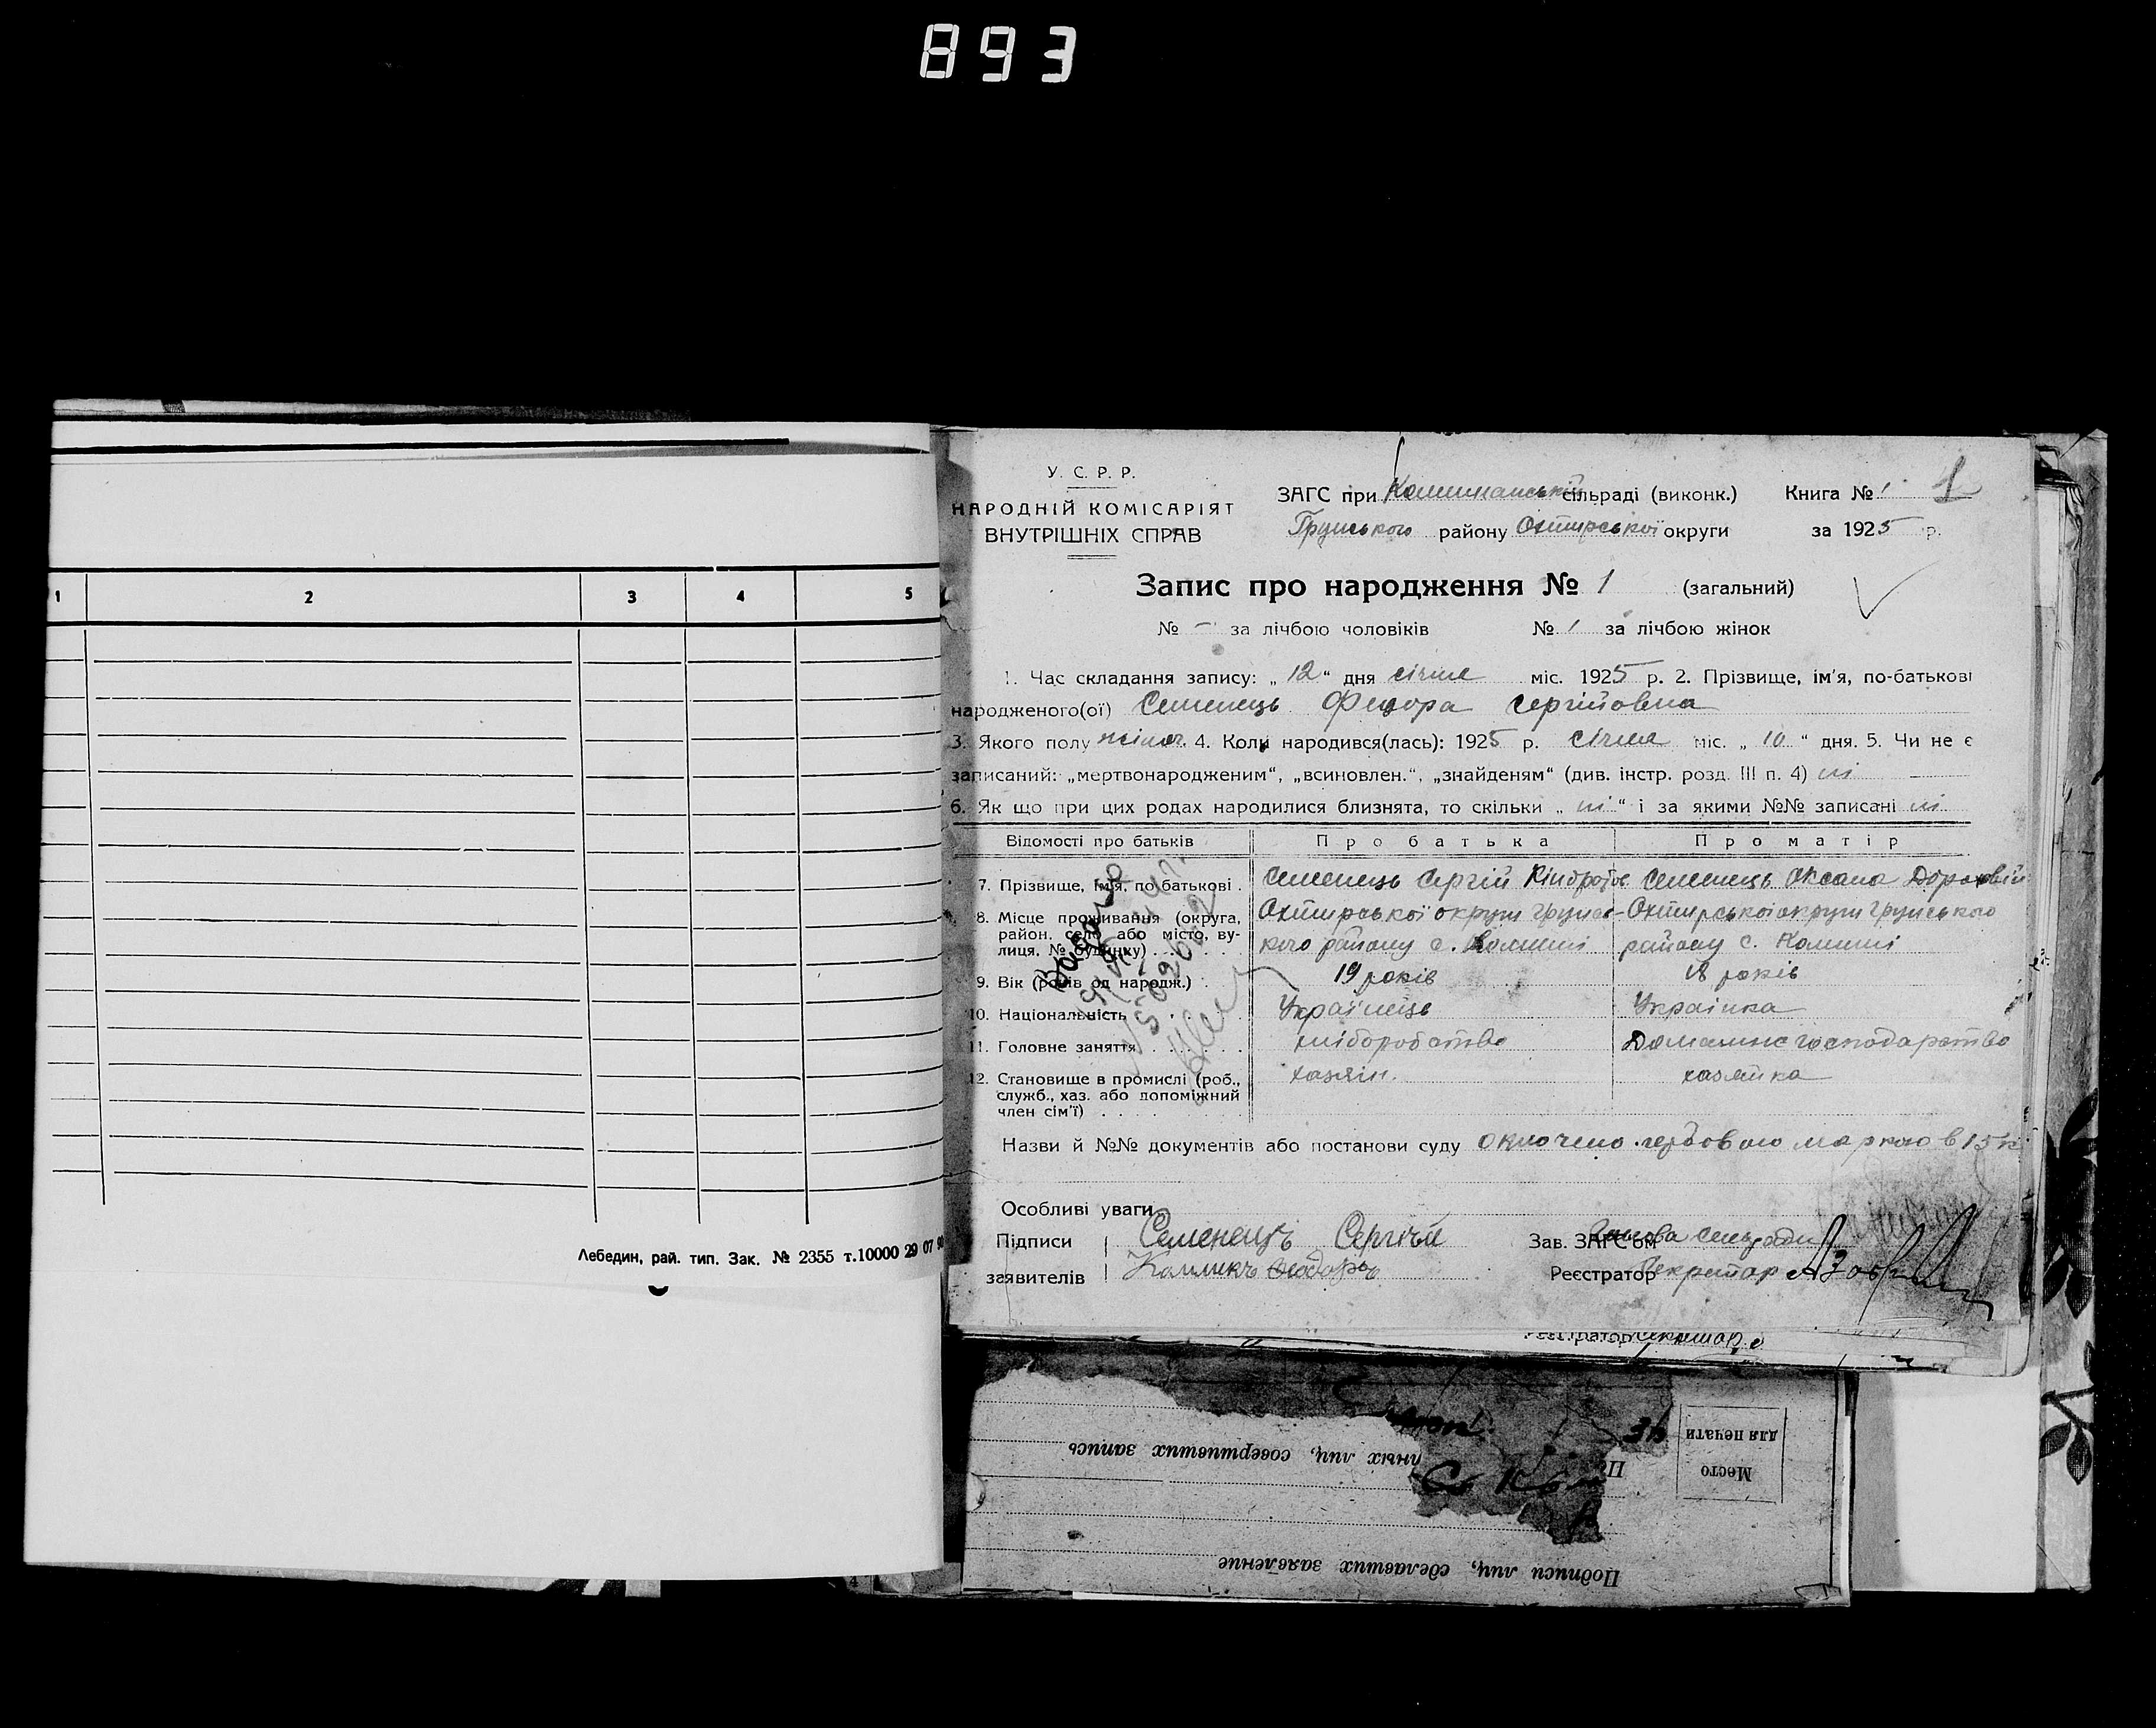 893
1 2 3 4 5
Лебедин, рай. тип. Зак. № 2355 т.10000 29 07
У. С. Р. Р.
НАРОДНІЙ КОМІСАРІЯТ
ВНУТРІШНІХ СПРАВ
ЗАГС при сільраді (виконк.) Книга № 1 1
Грунського району Охтирської округи за 1925 р.
Запис про народження № 1 (загальний)
№ – за лічбою чоловіків № 1 за лічбою жінок
1. Час складання запису: „ 12 “ дня січня міс. 1925 р. 2. Прізвище, ім'я, по-батькові
народженого(ої) Семенець Федора Сергійовна
3. Якого полу жіноч. 4. Коли народився(лась): 1925 р. січня міс. „ 10 “ дня. 5. Чи не є
записаний: „мертвонародженим“, „всиновлен.“, „знайденям“ (див. інстр. розд. III п. 4) ні
6. Як що при цих родах народилися близнята, то скільки „ ні “ і за якими №№ записані ні
Відомості про батьків Про батька Про матір
7. Прізвище, ім'я, по батькові . Семенець Сергій Семенець Оксана
8. Місце проживання (округа, район, село або місто, вулиця, № будинку) Охтирської округи Грунсь-
кого району с. Комиші
Охтирської округи Грунського
району с. Комиші
9. Вік (років од народж.) . 19 років 18 років
10. Національність Українець Українка
11. Головне заняття хліборобство Домашнє господарство
12. Становище в промислі (роб., хазяїн. хазяйка
служб., хаз. або допоміжний
член сім'ї) . . .
Назви й №№ документів або постанови суду оплочено гербовою маркою в 15 к
Особливі уваги
Підписи Семенець Сергій Зав. ЗАГС'ом Голова сільради
заявителів Реєстратор Секретар
Реєстратор Секретар
Место
для печати
ных лиц, совершивших запись
Подписи лиц, сделавших заявление